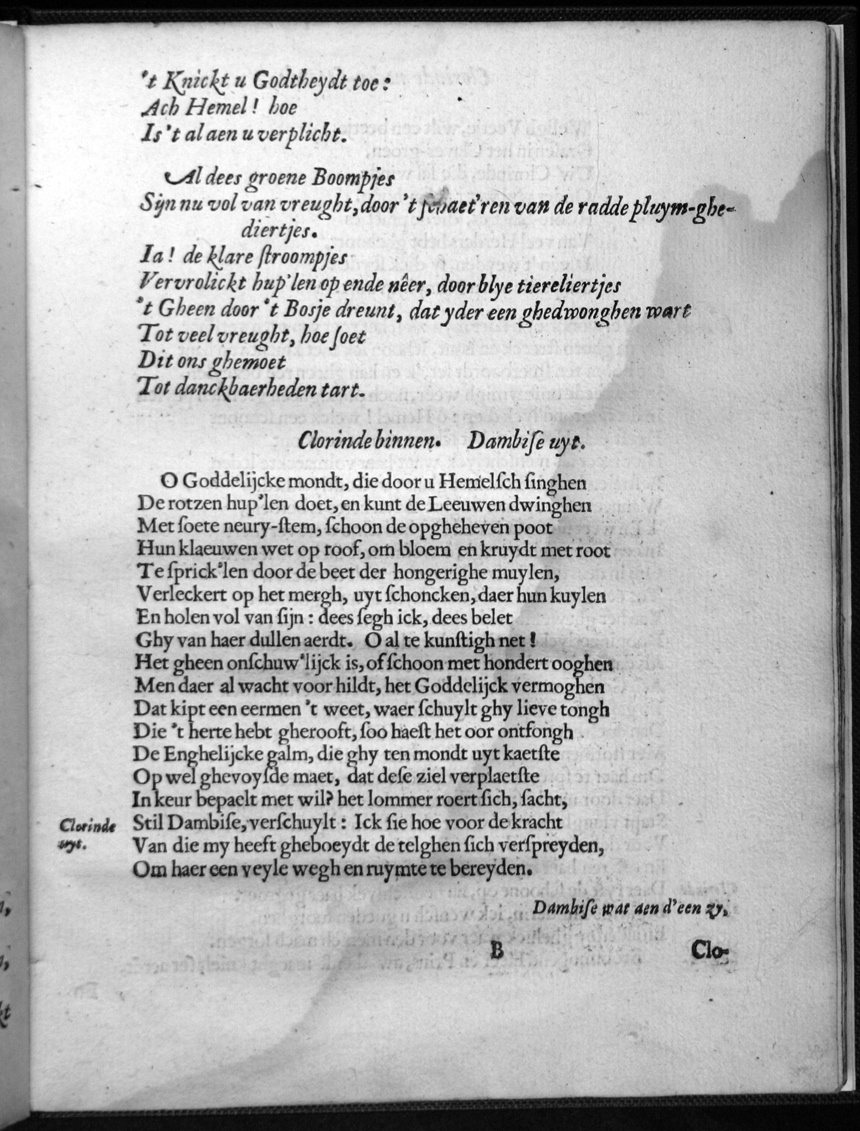 't Knickt u Godtheydt toe:
Ach Hemel! hoe
Is't al aen u verplicht.
Al dees groene Boompjes
Sijn nu vol van vreught, door 't schaet'ren van de radde pluym-ghe-
diertjes.
Ia! de klare stroompjes
Vervrolickt hup'len op ende nêer, door blye tiereliertjes
't Gheen door 't Bosje dreunt, dat yder een ghedwonghen wart
Tot veel vreught, hoe soet
Dit ons ghemoet
Tot danckbaerheden tart.
Clorinde binnen. Dambise uyt.
O Goddelijcke mondt, die door u Hemelsch singhen
De rotzen hup'len doet, en kunt de Leeuwen dwinghen
Met soete neury-stem, schoon de opgheheven poot
Hun klaeuwen wet op roof, om bloem en kruydt met root
Te sprick'len door de beet der hongerighe muylen,
Verleckert op het mergh, uyt schoncken, daer hun kuylen
En holen vol van sijn: dees segh ick, dees belet
Ghy van haer dullen aerdt. O al te kunstigh net!
Het gheen onschuw'lijck is, of schoon met hondert ooghen
Men daer al wacht voor hildt, het Goddelijck vermoghen
Dat kipt een eermen 't weet, waer schuylt ghy lieve tongh
Die 't herte hebt gherooft, soo haest het oor ontfongh
De Enghelijcke galm, die ghy ten mondt uyt kaetste
Op wel ghevoysde maet, dat dese ziel verplaetste
In keur bepaelt met wil? het lommer roert sich, sacht,
Clorinde uyt. Stil Dambise, verschuylt: Ick sie hoe voor de kracht
Van die my heeft gheboeydt de telghen sich verspreyden,
Om haer een veyle wegh en ruymte te bereyden.
Dambise wat aen d'een zy,
B Clo-